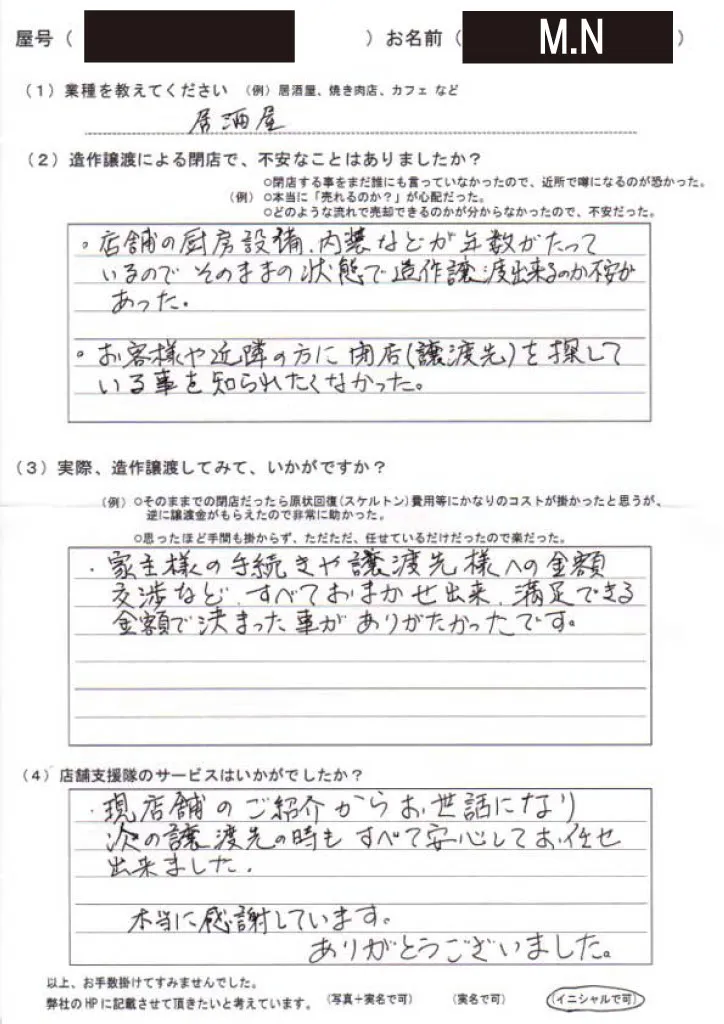 屋号（　　　　　）お名前（ M.N ）
（1）業種を教えてください （例）居酒屋、焼き肉店、カフェ など
居酒屋
（2）造作譲渡による閉店で、不安なことはありましたか？
○閉店する事をまだ誰にも言っていなかったので、近所で噂になるのが恐かった。
（例）○本当に「売れるのか？」が心配だった。
○どのような流れで売却できるのかが分からなかったので、不安だった。
。店舗の厨房設備、内装などが年数がたって
いるので そのままの状態で造作譲渡出来るのか不安が
あった。
。お客様や近隣の方に閉店(譲渡先)を探して
いる事を知られたくなかった。
（3）実際、造作譲渡してみて、いかがですか？
（例）○そのままでの閉店だったら原状回復(スケルトン)費用等にかなりのコストが掛かったと思うが、
逆に譲渡金がもらえたので非常に助かった。
○思ったほど手間も掛からず、ただただ、任せているだけだったので楽だった。
・家主様の手続きや譲渡先様への金額
交渉など、すべておまかせ出来、満足できる
金額で決まった事がありがたかったです。
（4）店舗支援隊のサービスはいかがでしたか？
・現店舗のご紹介からお世話になり
次の譲渡先の時もすべて安心してお任せ
出来ました。
本当に感謝しています。
ありがとうございました。
以上、お手数掛けてすみませんでした。
弊社のHPに記載させて頂きたいと考えています。（写真＋実名で可）　（実名で可）　（イニシャルで可）